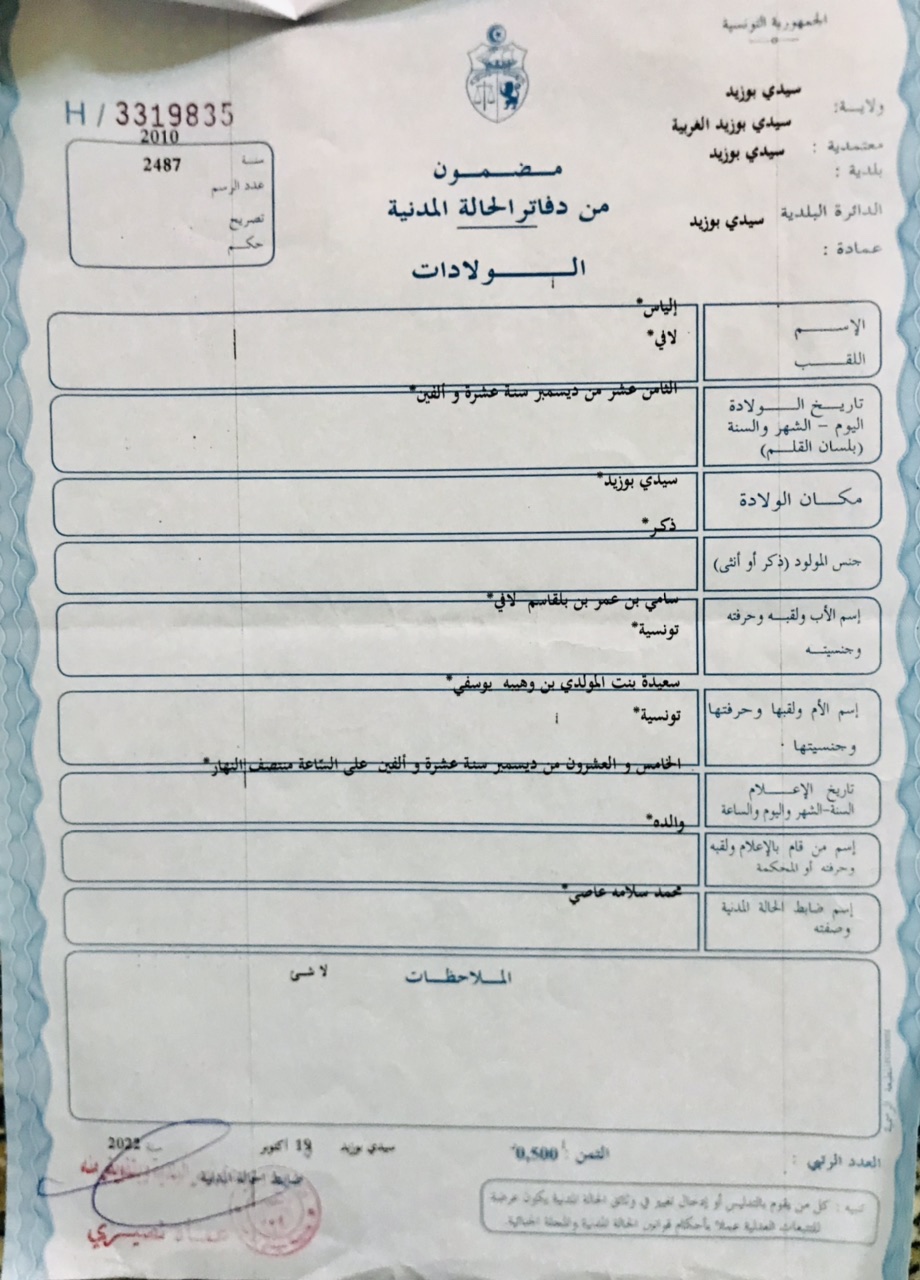 الجمهورية التونسية
ولاية: سيدي بوزيد
معتمدية : سيدي بوزيد الغربية
بلدية : سيدي بوزيد
الدائرة البلدية سيدي بوزيد
عمادة :
H / 3319835
سنة 2010
عدد الرسم 2487
تصريح
حكم
مضمون
من دفاتر الحالة المدنية
الولادات
الإسم إلياس*
اللقب لافي*
تاريخ الولادة
اليوم - الشهر والسنة
(بلسان القلم)
الثامن عشر من ديسمبر سنة عشرة و ألفين*
مكان الولادة سيدي بوزيد*
جنس المولود (ذكر أو أنثى) ذكر*
إسم الأب ولقبه وحرفته
وجنسيته
سامي بن عمر بن بلقاسم لافي*
تونسية*
إسم الأم ولقبها وحرفتها
وجنسيتها
سعيدة بنت المولدي بن وهيبه يوسفي*
تونسية*
تاريخ الإعلام
السنة-الشهر واليوم والساعة
الخامس و العشرون من ديسمبر سنة عشرة و ألفين على السّاعة منتصف النهار*
إسم من قام بالإعلام ولقبه
وحرفته أو المحكمة
والده*
إسم ضابط الحالة المدنية
وصفته
محمد سلامه عاصي*
الملاحظات
لا شئ
العدد الرتبي :
الثمن : 0,500
سيدي بوزيد 19 أكتوبر 2022
ضابط الحالة المدنية
تنبيه : كل من يقوم بالتدليس أو إدخال تغيير في وثائق الحالة المدنية يكون عرضة
للتتبعات العدلية عملا بأحكام قوانين الحالة المدنية والمجلة الجنائية.